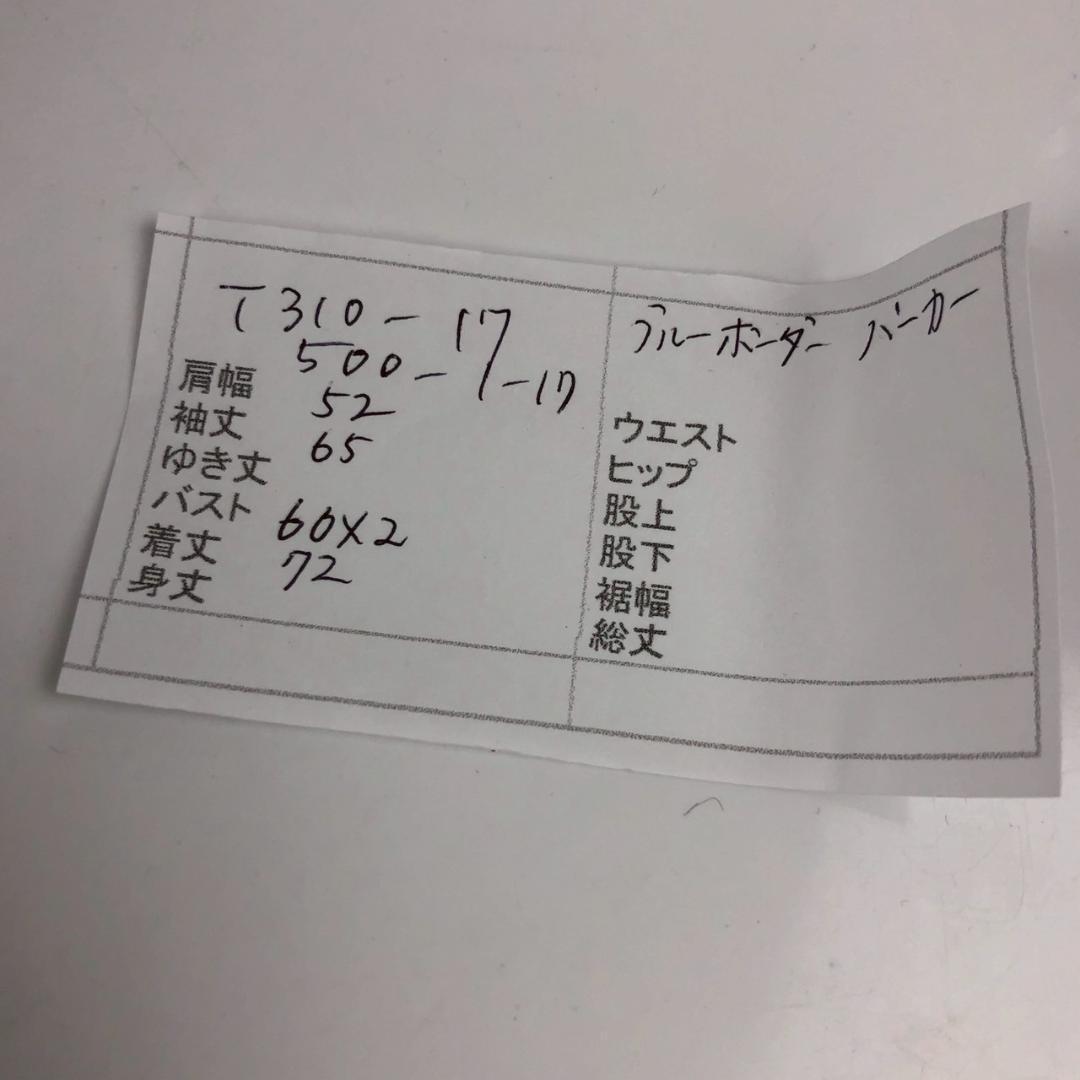 T310-17
500-17-17
肩幅 52
袖丈 65
ゆき丈
バスト 60×2
着丈 72
身丈
ブルーボーダー パーカー
ウエスト
ヒップ
股上
股下
裾幅
総丈